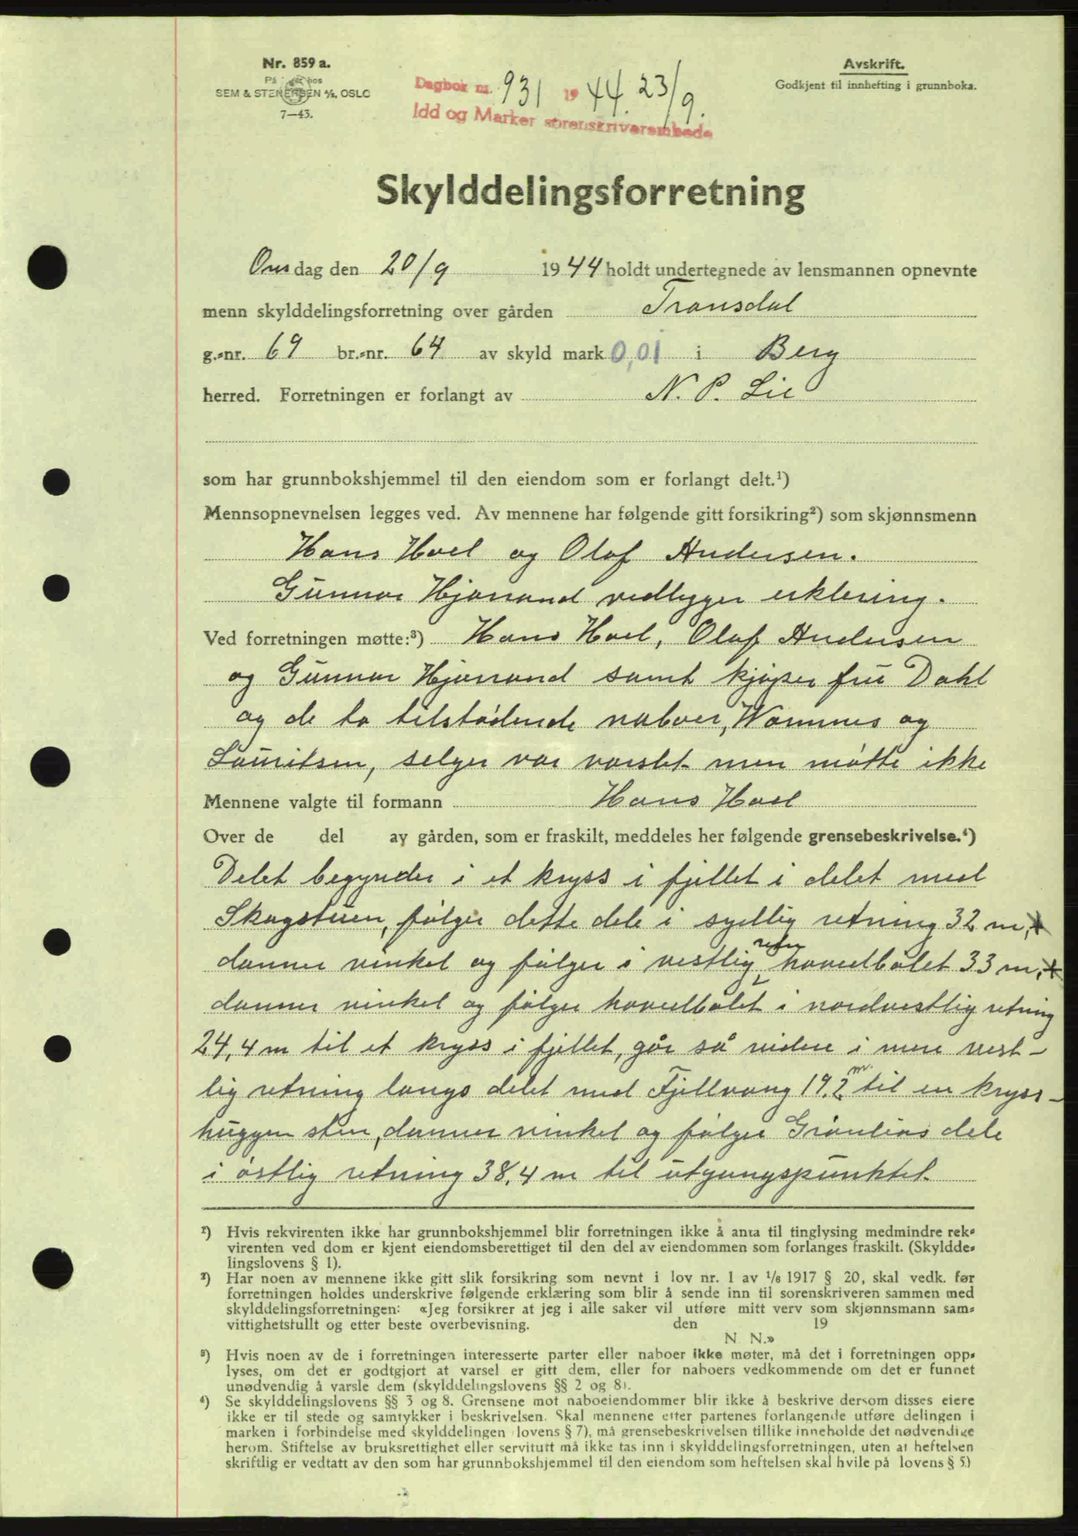 Nr. 859 a.
På lager hos
SEM & STENERSEN A/S, OSLO
7-43.
Dagbok nr. 931 1944. 23/9.
Idd og Marker sorenskriverembede
Avskrift.
Godkjent til innhefting i grunnboka.
Skylddelingsforretning
Onsdag den 20/9 1944 holdt undertegnede av lensmannen opnevnte
menn skylddelingsforretning over gården Tronsdal
g.=nr. 69 br.=nr. 64 av skyld mark 0,01 i Berg
herred. Forretningen er forlangt av N. P. Lie
som har grunnbokshjemmel til den eiendom som er forlangt delt.¹)
Mennsopnevnelsen legges ved. Av mennene har følgende gitt forsikring²) som skjønnsmenn
Hans Hoel og Olaf Andersen.
Gunnar Hjorand vedlegger erklæring.
Ved forretningen møtte:³) Hans Hoel, Olaf Andersen
og Gunnar Hjorand samt kjøper frü Dahl
og de to tilstødende naboer, Wammes og
Lauritsen, selger var varslet men møtte ikke
Mennene valgte til formann Hans Hoel
Over de del av gården, som er fraskilt, meddeles her følgende grensebeskrivelse.⁴)
Delet begynder i et kryss i fjellet i delet med
Skogstuen, følger dette dele i sydlig retning 32 m,
danner vinkel og følger i vestlig retn hovedbølet 33 m,
danner vinkel og følger hovedbølet i nordvestlig retning
24,4 m til et kryss i fjellet, går så videre i mere vest-
lig retning langs delet med Fjellvang 19.2 m. til en kryss-
huggen sten, danner vinkel og følger Grønlias dele
i østlig retning 38,4 m til utgangspunktet.
¹) Hvis rekvirenten ikke har grunnbokshjemmel blir forretningen ikke å anta til tinglysing medmindre rek=
virenten ved dom er kjent eiendomsberettiget til den del av eiendommen som forlanges fraskilt. (Skyldde=
lingslovens § 1).
²) Har noen av mennene ikke gitt slik forsikring som nevnt i lov nr. 1 av 1/6 1917 § 20, skal vedk. før
forretningen holdes underskrive følgende erklæring som blir å sende inn til sorenskriveren sammen med
skylddelingsforretningen: «Jeg forsikrer at jeg i alle saker vil utføre mitt verv som skjønnsmann sam=
vittighetsfullt og etter beste overbevisning. den 19
N. N.»
³) Hvis noen av de i forretningen interesserte parter eller naboer ikke møter, må det i forretningen opp=
lyses, om det er godtgjort at varsel er gitt dem, eller for naboers vedkommende om det er funnet
unødvendig å varsle dem (skylddelingslovens §§ 2 og 8).
⁴) Se skylddelingslovens §§ 3 og 8. Grensene mot naboeiendommer blir ikke å beskrive dersom disses eiere
ikke er til stede og samtykker i beskrivelsen. Skal mennene etter partenes forlangende utføre delingen i
marken i forbindelse med skylddelingen (lovens § 7), må grensebeskrivelsen tillike inneholde det nødvendige
herom. Stiftelse av bruksrettighet eller servitutt må ikke tas inn i skylddelingsforretningen, uten at heftelsen
skriftlig er vedtatt av den som har grunnbokshjemmel til den eiendom som heftelsen skal hvile på (lovens § 5.)